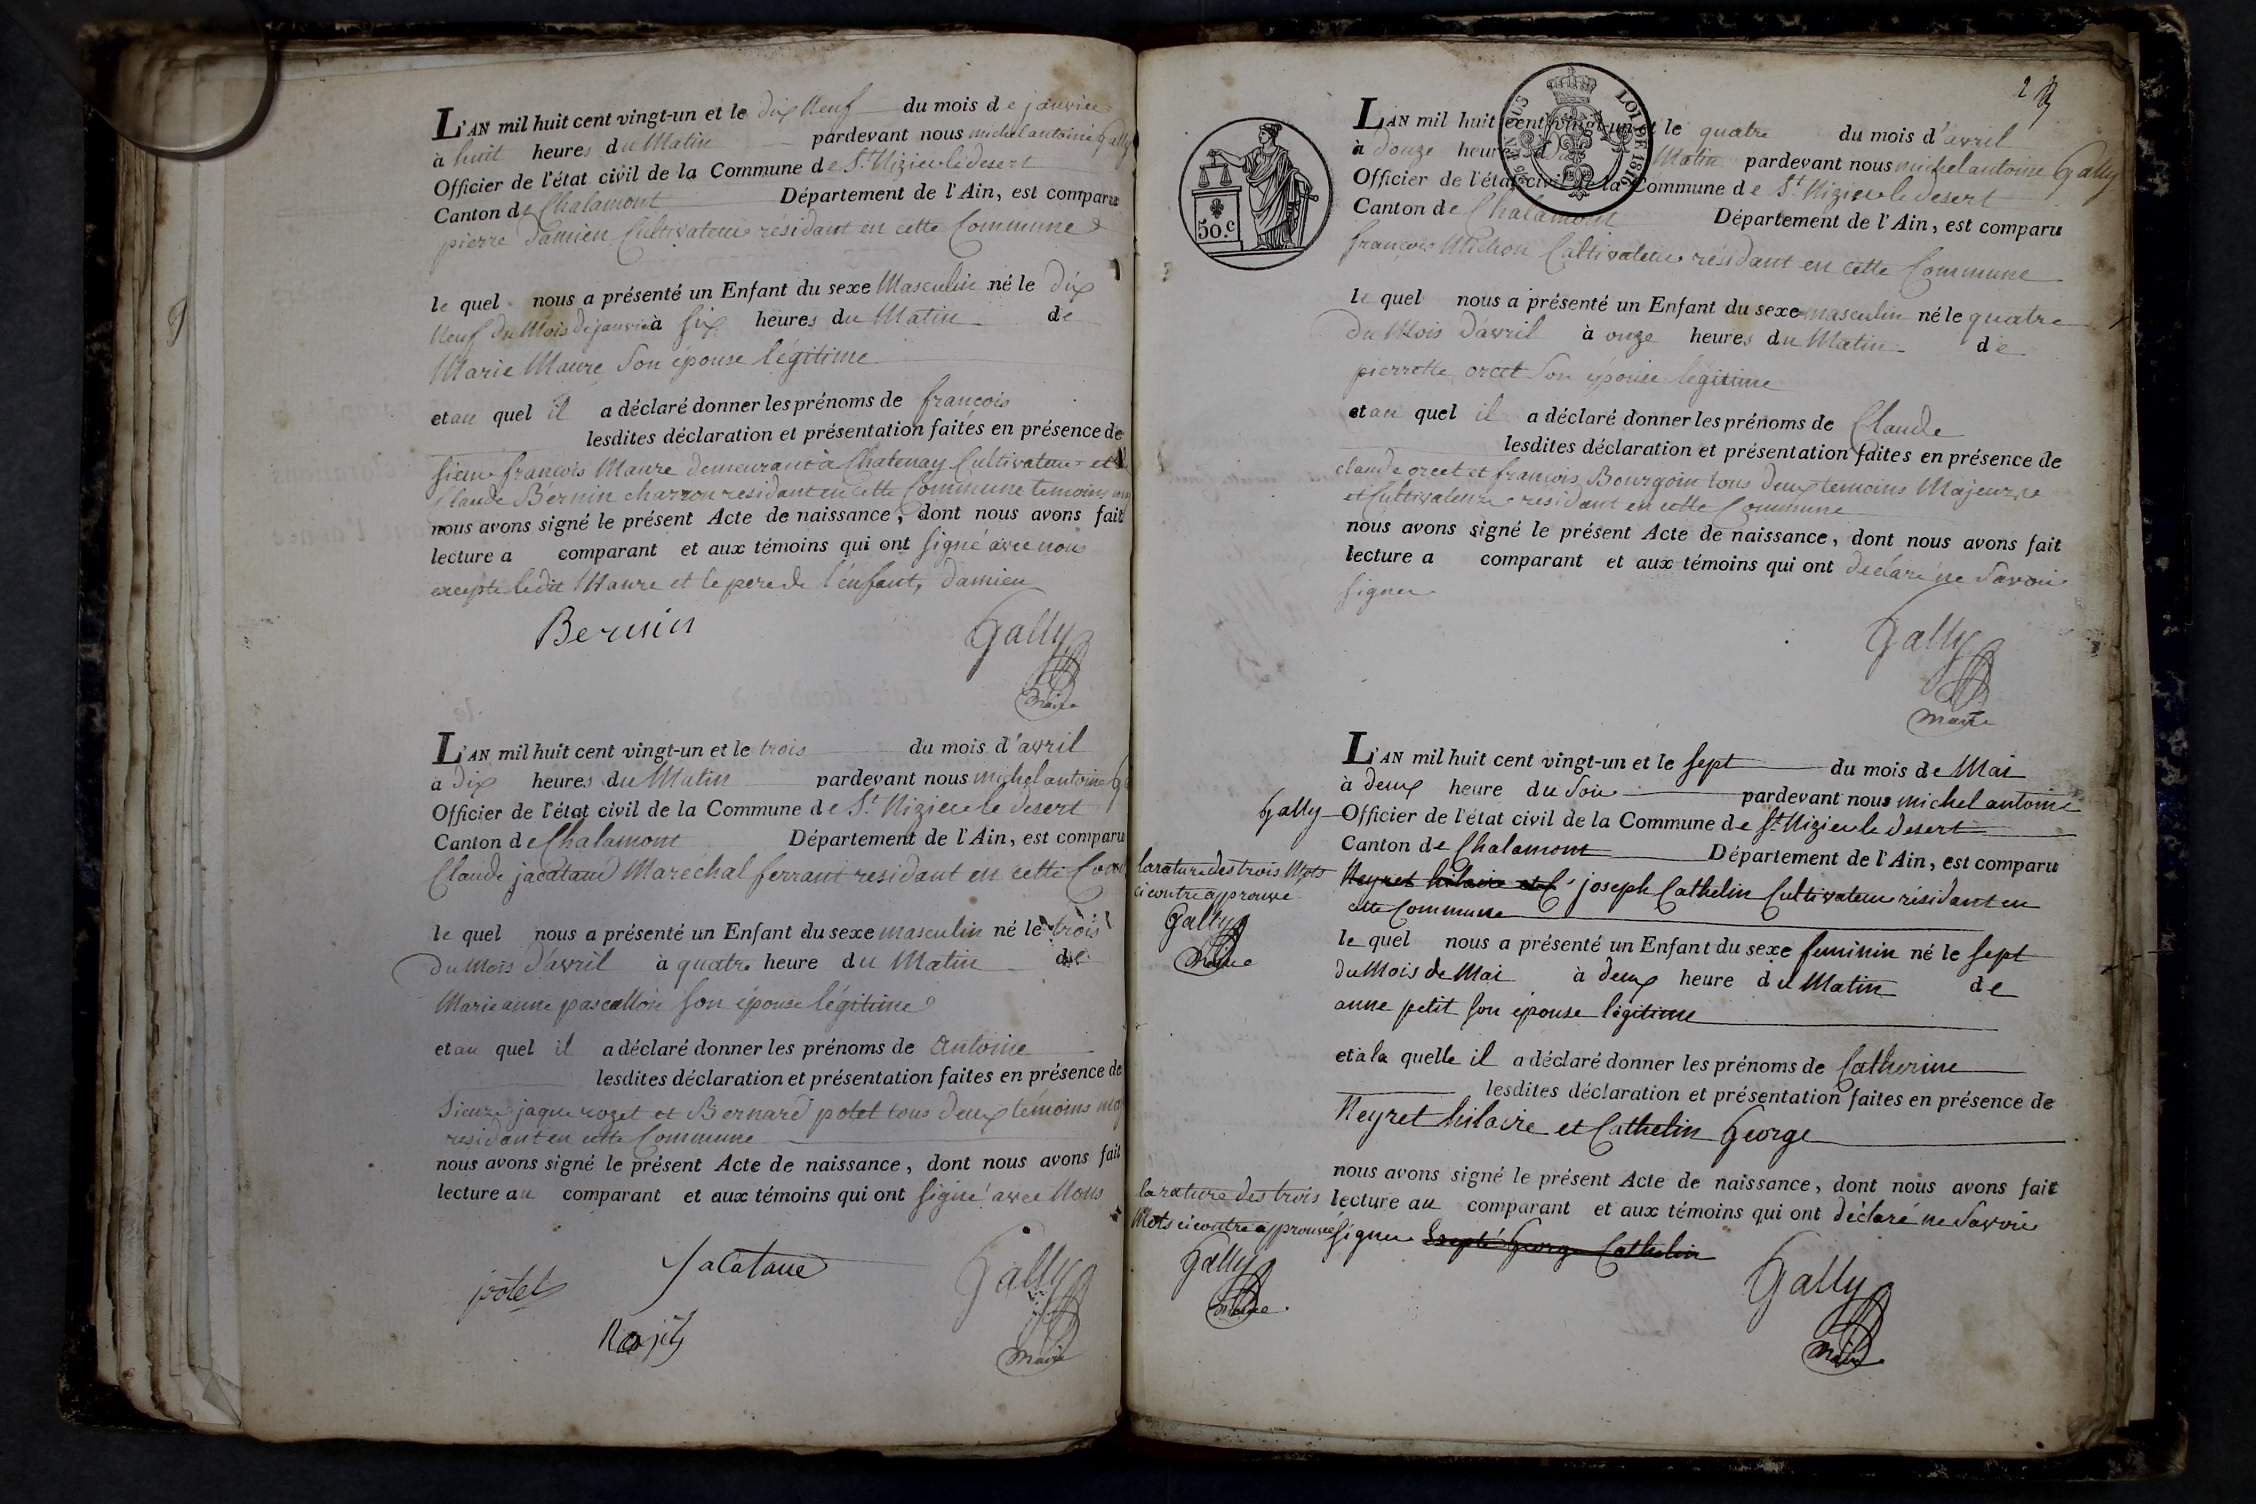 L'AN mil huit cent vingt-un et le dix Neuf du mois de janvier
à huit heures du Matin pardevant nous michel antoine Gally
Officier de l'état civil de la Commune de St. Nizier le desert
Canton de Chalamont Département de l'Ain, est comparu
pierre Damien Cultivateur résidant en cette Commune
le quel nous a présenté un Enfant du sexe Masculin né le dix
Neuf du Mois de janvier à six heures du Matin de
Marie Maure Son épouse légitime
et au quel il a déclaré donner les prénoms de françois
lesdites déclaration et présentation faites en présence de
sieur françois Maure demeurant à Chatenay Cultivateur et
Claude Bernin charron residant en cette Commune temoins
nous avons signé le présent Acte de naissance, dont nous avons fait
lecture a comparant et aux témoins qui ont signé avec nous
excepté ledit Maure et le pere de l'enfant, Damien
Bernin Gally
Maire
L'AN mil huit cent vingt-un et le trois du mois d'avril
a dix heures du Matin pardevant nous michel antoine
Officier de l'état civil de la Commune de St. Nizier le desert
Canton de Chalamont Département de l'Ain, est comparu
Claude jacataud Marechal ferrant residant en cette
le quel nous a présenté un Enfant du sexe masculin né le trois
du Mois d'avril à quatre heure du Matin de
Marie anne pascallon son épouse légitime
et au quel il a déclaré donner les prénoms de antoine
lesdites déclaration et présentation faites en présence de
Sieurs jaque rozet et Bernard potet tous deux témoins
residant en cette Commune
nous avons signé le présent Acte de naissance, dont nous avons fait
lecture au comparant et aux témoins qui ont signé avec Nous
potet Jacataud Gally
Maire
2
LOI DE 1816
50.c
L'AN mil huit cent vingt-un et le quatre du mois d'avril
à douze heures du Matin pardevant nous michel antoine Gally
Officier de l'état civil de la Commune de St. Nizier le desert
Canton de Chalamont Département de l'Ain, est comparu
françois Michon Cultivateur résidant en cette Commune
le quel nous a présenté un Enfant du sexe masculin né le quatre
du Mois d'avril à onze heures du Matin de
pierrette orcet Son épouse légitime
et au quel il a déclaré donner les prénoms de Claude
lesdites déclaration et présentation faites en présence de
claude orcet et françois Bourgoin tous deux temoins Majeurs
et Cultivateurs residant en cette Commune
nous avons signé le présent Acte de naissance, dont nous avons fait
lecture a comparant et aux témoins qui ont déclaré ne Savoir
signer
Gally
Maire
L'AN mil huit cent vingt-un et le sept du mois de Mai
à deux heure du Soir pardevant nous michel antoine
Gally Officier de l'état civil de la Commune de St. Nizier le desert
Canton de Chalamont Département de l'Ain, est comparu
la rature des trois Mots
ci contre approuvé
Gally
Maire
Neyret hilaire et C joseph Cathelin Cultivateur résidant en
cette Commune
le quel nous a présenté un Enfant du sexe feminin né le sept
du Mois de Mai à deux heure du Matin de
anne petit son épouse légitime
et à la quelle il a déclaré donner les prénoms de Catherine
lesdites déclaration et présentation faites en présence de
Neyret hilaire et Cathelin George
nous avons signé le présent Acte de naissance, dont nous avons fait
lecture au comparant et aux témoins qui ont déclaré ne Savoir
signer Excepté George Cathelin
la rature des trois
Mots ci contre approuvé
Gally
Maire
Gally
Maire